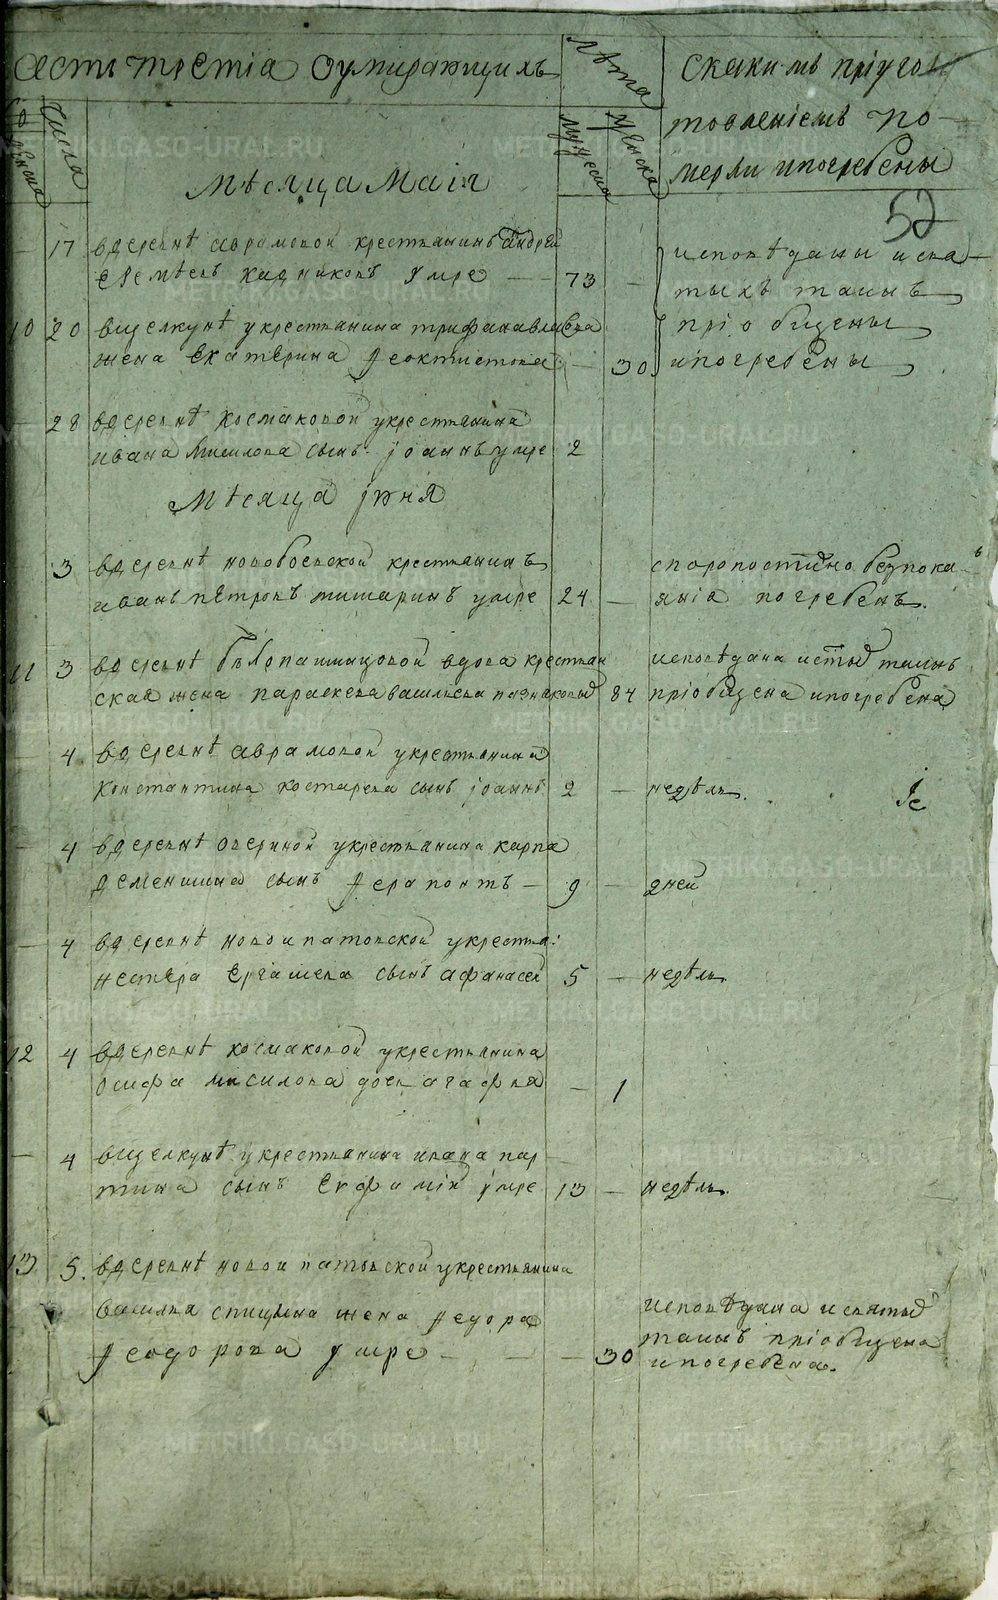 асть третіа оумирающихъ
Лѣта
скакимъ пріуго
товленіемъ по-
мерли ипогребены
Числа
мужеска
женска
Мѣсяца Маія
52
17 вдеревнѣ аврамовой крестьянинъ андрей
умре 73
исповѣданы исвя-
тыхъ таинъ
10 20 вщелкунѣ укрестьянина трифана
жена екатерина феоктистова 30
пріобщены
ипогребены
28 вдеревнѣ космаковой укрестьянина
ивана сынъ іоаннъ умре 2
Мѣсяца іюня
3 вдеревнѣ крестьянинъ
иванъ петровъ мишаринъ умре 24
скоропостижно безпока
янія погребенъ.
11 3 вдеревнѣ вдова крестьян
ская жена параскева 84
исповѣдана истых таинъ
пріобщена ипогребена
4 вдеревнѣ аврамовой укрестьянина
константина костарева сынъ іоаннъ 2 недѣль
4 вдеревнѣ авериной укрестьянина карпа
деменшина сынъ ферапонтъ 9 дней
4 вдеревнѣ новоипатовской укрестья:
нестера сынъ афанасей 5 недѣль
12 4 вдеревнѣ космаковой укрестьянина
осифа дочь агафья 1
4 вщелкунѣ укрестьянина ивана пар
тина сынъ умре 13 недѣль.
13 5. вдеревнѣ новоипатовской укрестьянина
василья спицына жена федора
феодорова умре 30
исповѣдана исвятых
таинъ пріобщена
ипогребена.
METRIKI.GASO-URAL.RU